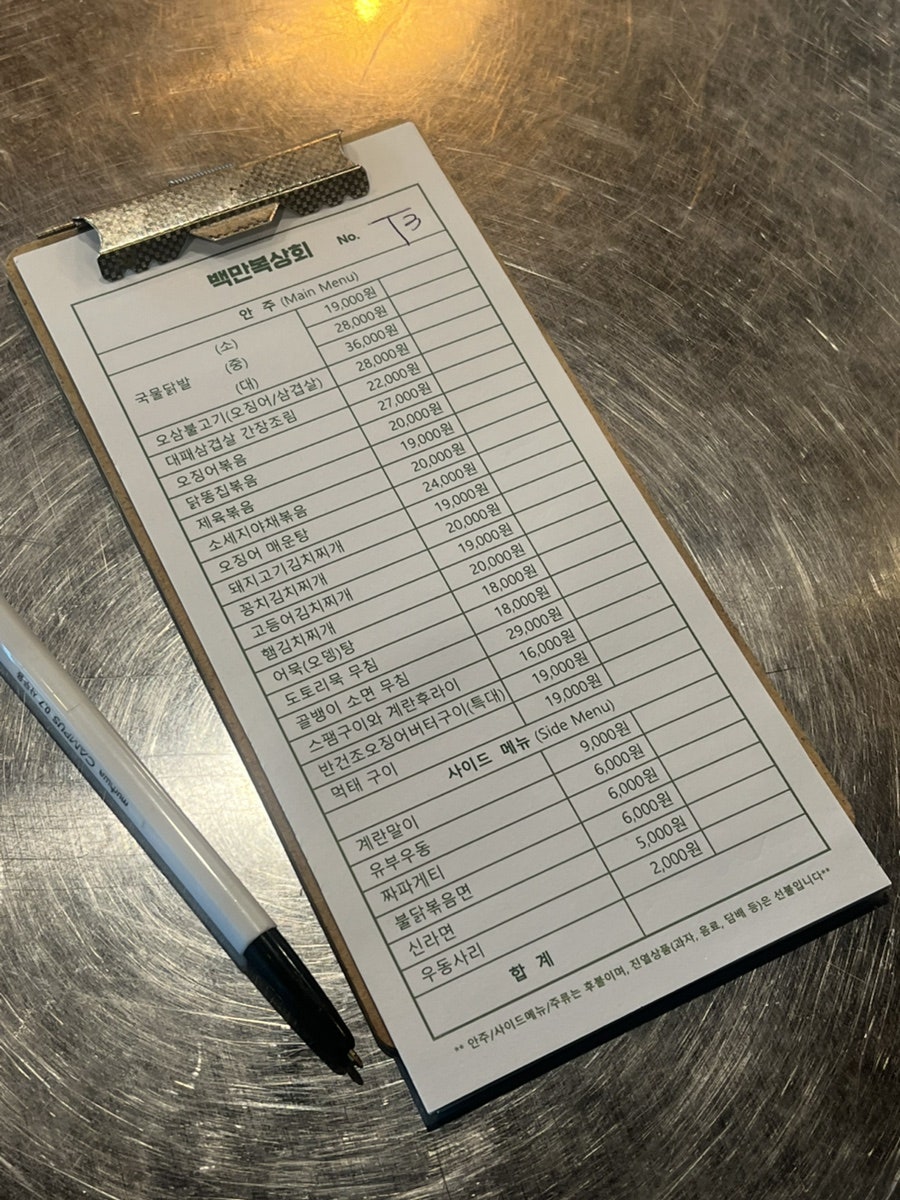 백만복상회 No. T3
안 주 (Main Menu)
국물닭발 (소) 19,000원
(중) 28,000원
(대) 36,000원
오삼불고기(오징어/삼겹살) 28,000원
대패삼겹살 간장조림 22,000원
오징어볶음 27,000원
닭똥집볶음 20,000원
제육볶음 19,000원
소세지야채볶음 20,000원
오징어 매운탕 24,000원
돼지고기김치찌개 19,000원
꽁치김치찌개 20,000원
고등어김치찌개 19,000원
햄김치찌개 20,000원
어묵(오뎅)탕 18,000원
도토리묵 무침 18,000원
골뱅이 소면 무침 29,000원
스팸구이와 계란후라이 16,000원
반건조오징어버터구이(특대) 19,000원
먹태 구이 19,000원
사이드 메뉴 (Side Menu)
계란말이 9,000원
유부우동 6,000원
짜파게티 6,000원
불닭볶음면 6,000원
신라면 5,000원
우동사리 2,000원
합 계
** 안주/사이드메뉴/주류는 후불이며, 진열상품(과자, 음료, 담배 등)은 선불입니다**
CAMPUS 0.7